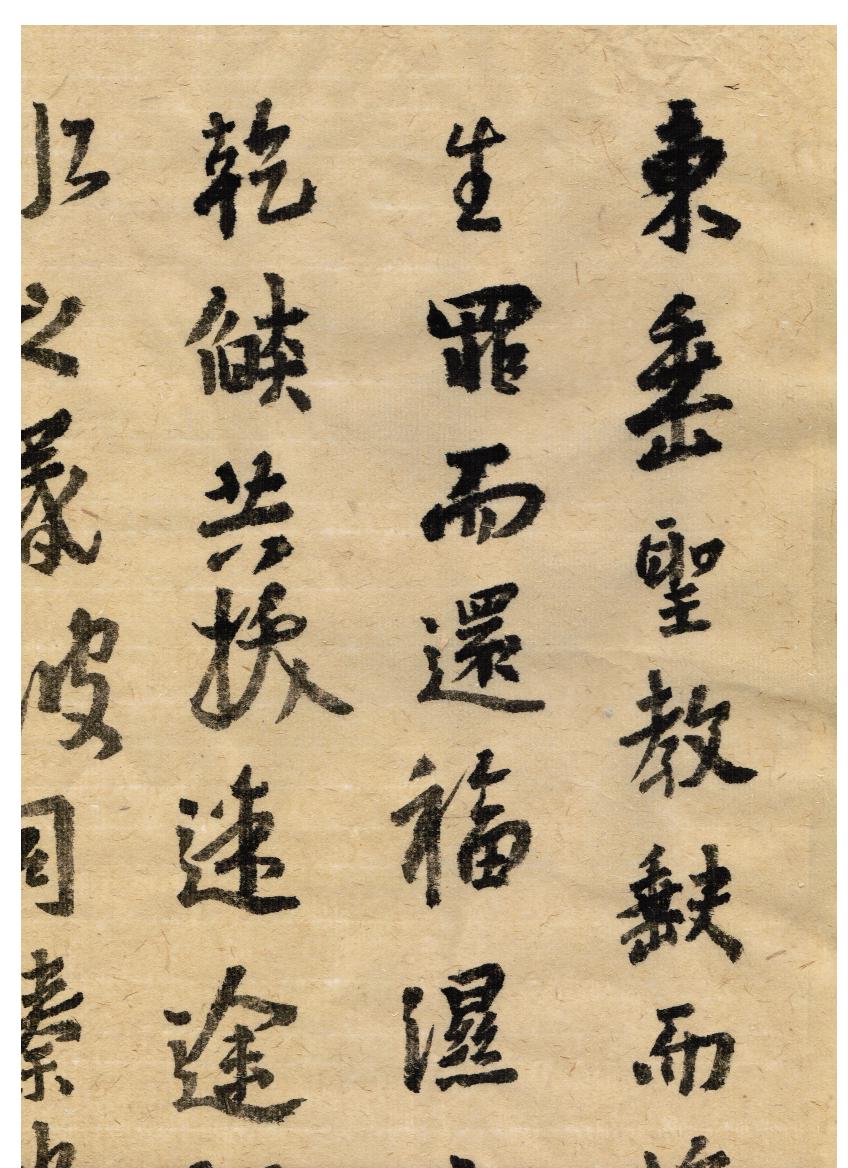 東垂聖教缺而
生罪而還福濕
乾燄共拔迷途
水之昏波同臻